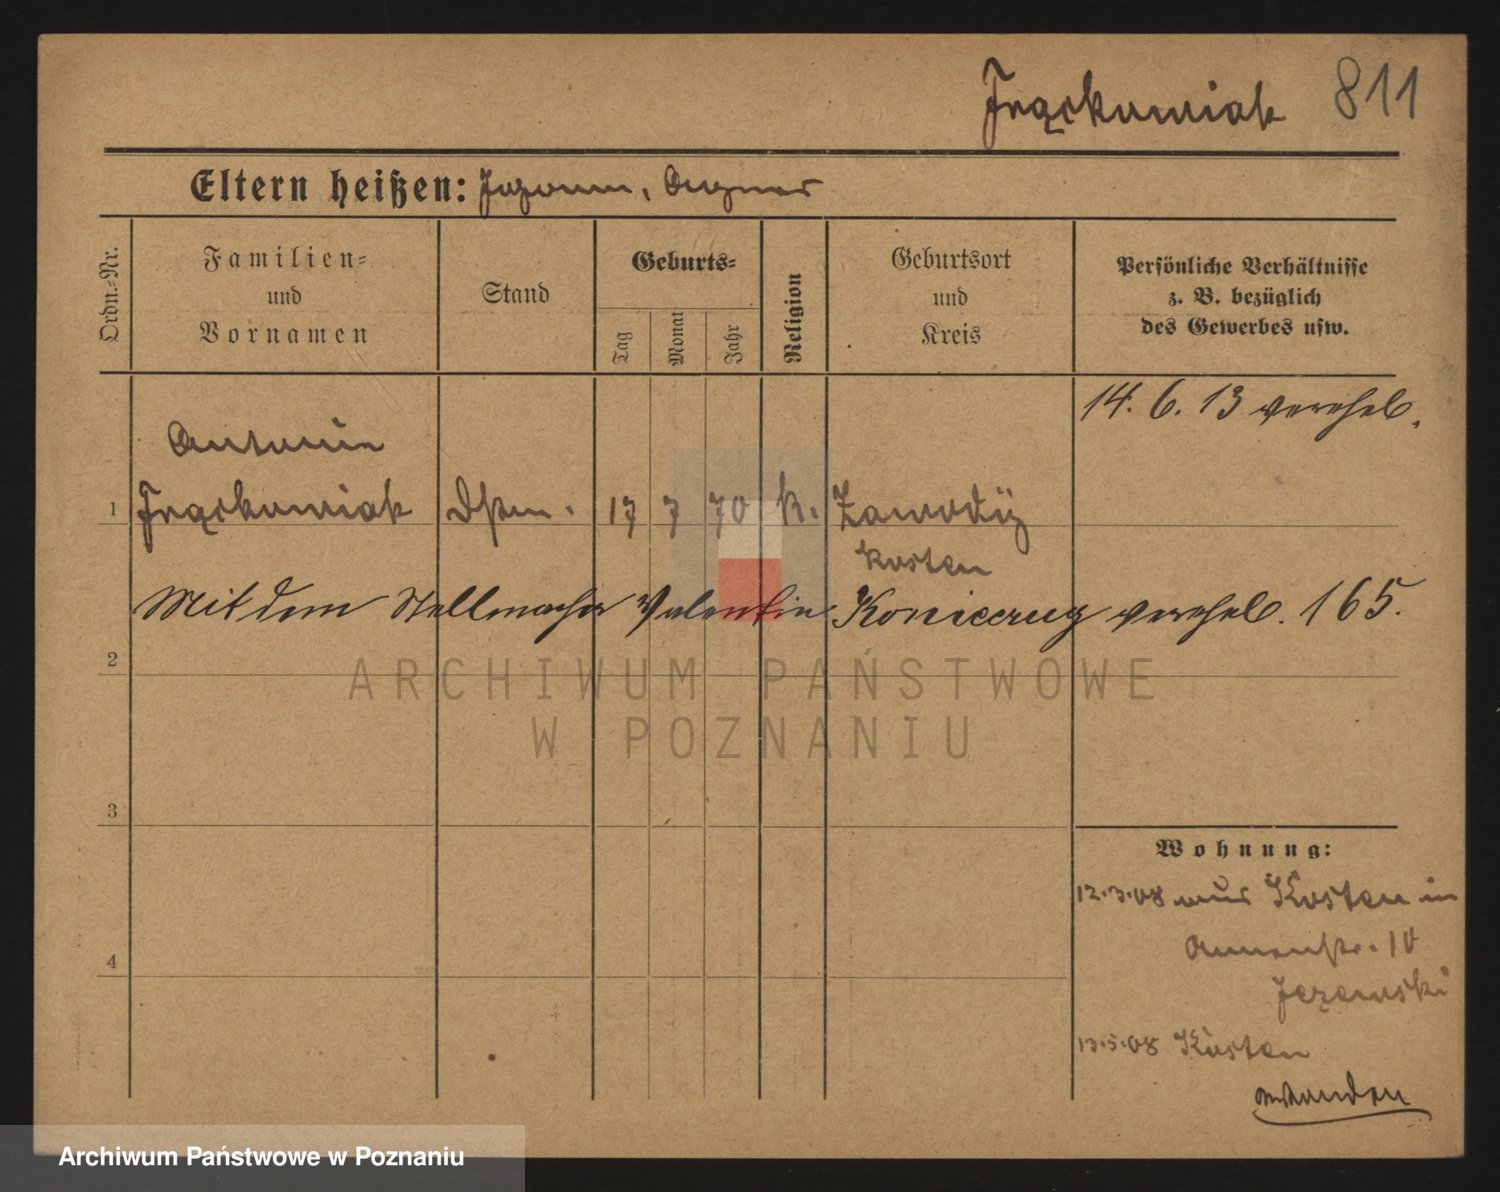 Frąckowiak 811
Eltern heißen: Johann, Agnes
Ordn.-Nr.
Familien-
und
Vornamen
Stand
Geburts-
Tag
Monat
Jahr
Religion
Geburtsort
und
Kreis
Persönliche Verhältnisse
z. B. bezüglich
des Gewerbes usw.
14. 6. 13 verehel.
Antonie
1 Frąckowiak 17 7 70 k.
Kosten
Mit dem Stellmacher Valentin verehel. 165.
2
ARCHIWUM PAŃSTWOWE
W POZNANIU
3
Wohnung:
12.3.08 aus Kosten in
4
10
13.5.08 Kosten
Archiwum Państwowe w Poznaniu